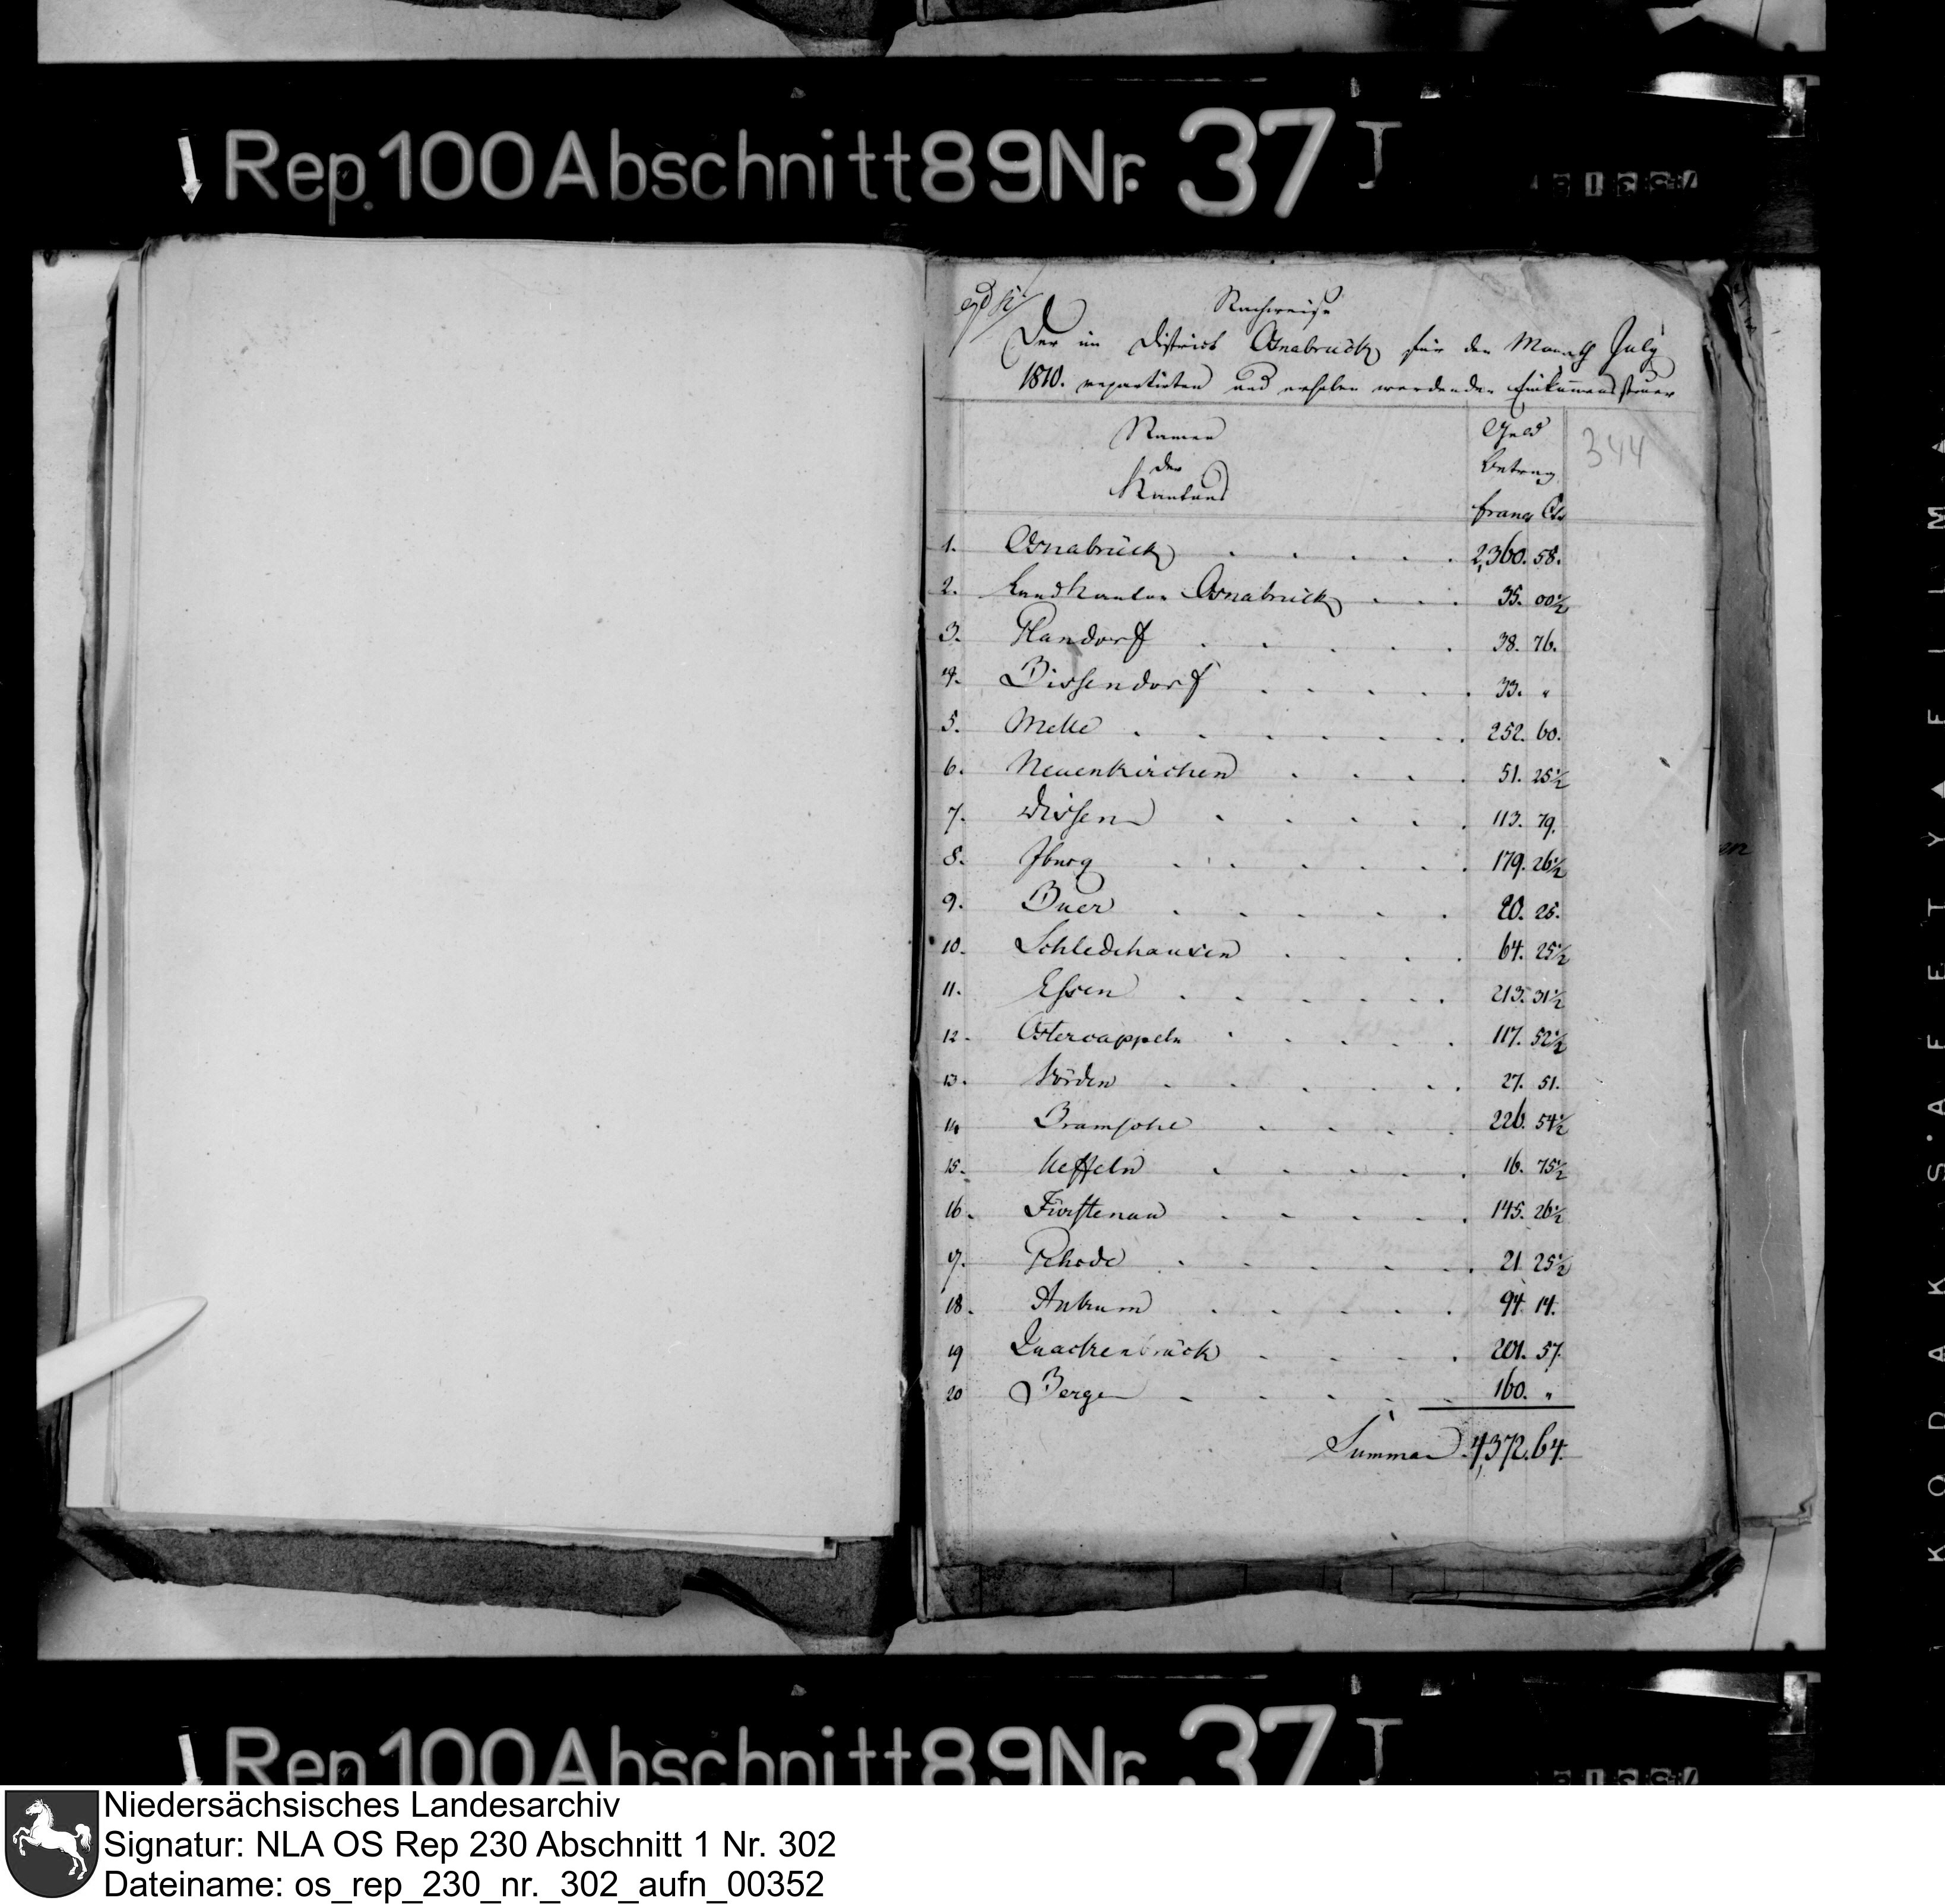 Rep. 100 Abschnitt 89 Nr. 37 I
Nachweise
Der im District Osnabrück für den Monath July
1810. repartirten und erhoben werdenden Einkommensteuer
Namen
der
Kantons
Geld
Betrag
francs Cts
344
1. Osnabrück . . . . . 2,360. 58.
2. Landkanton Osnabrück . . . 35. 00 1/2
3. Glandorf . . . . . 38. 76.
4. Bissendorf . . . . . 33. "
5. Melle . . . . . . . 252. 60.
6. Neuenkirchen . . . . 51. 25 1/2
7. Dissen . . . . . 113. 79.
8. Iburg . . . . . . 179. 26 1/2
9. Buer . . . . . 20. 25.
10. Schledehausen . . . . 64. 25 1/2
11. Essen . . . . . . 213. 31 1/2
12. Ostercappeln . . . . . 117. 52 1/2
13. Vörden . . . . . . 27. 51.
14 Bramsche . . . . 226. 54 1/2
15. Ueffeln . . . . . 16. 75 1/2
16. Fürstenau . . . . . 145. 26 1/2
17. . . . . . . 21 25 1/2
18. Ankum . . . . . 94. 14.
19 Quackenbrück . . . . 201. 57.
20 Berge . . . . . 160. "
Summa 4,372. 64.
en
KODAK SAFETY FILM
Rep 100 Abschnitt 89 Nr. 37 I
Niedersächsisches Landesarchiv
Signatur: NLA OS Rep 230 Abschnitt 1 Nr. 302
Dateiname: os_rep_230_nr._302_aufn_00352